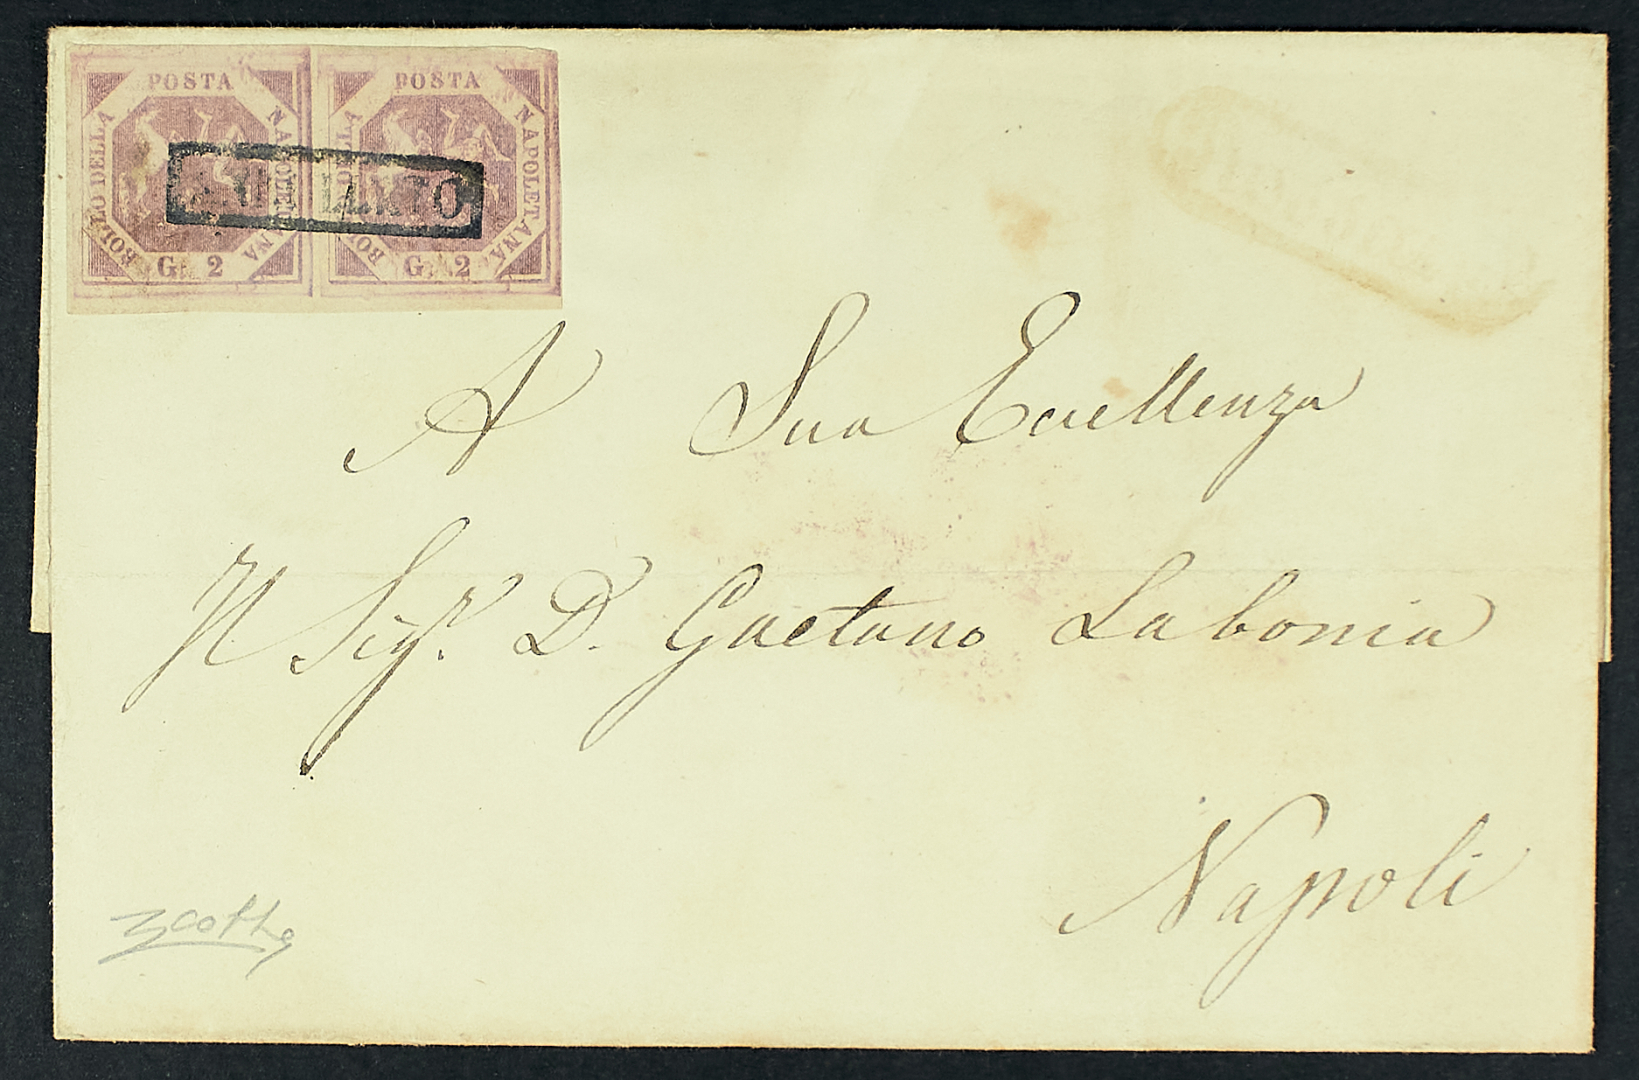 POSTA
NAPOLETANA
BOLLO DELLA
G. 2
POSTA
NAPOLETANA
BOLLO DELLA
G. 2
A Sua Eccellenza
Il Sig.r D. Gaetano Labonia
Napoli